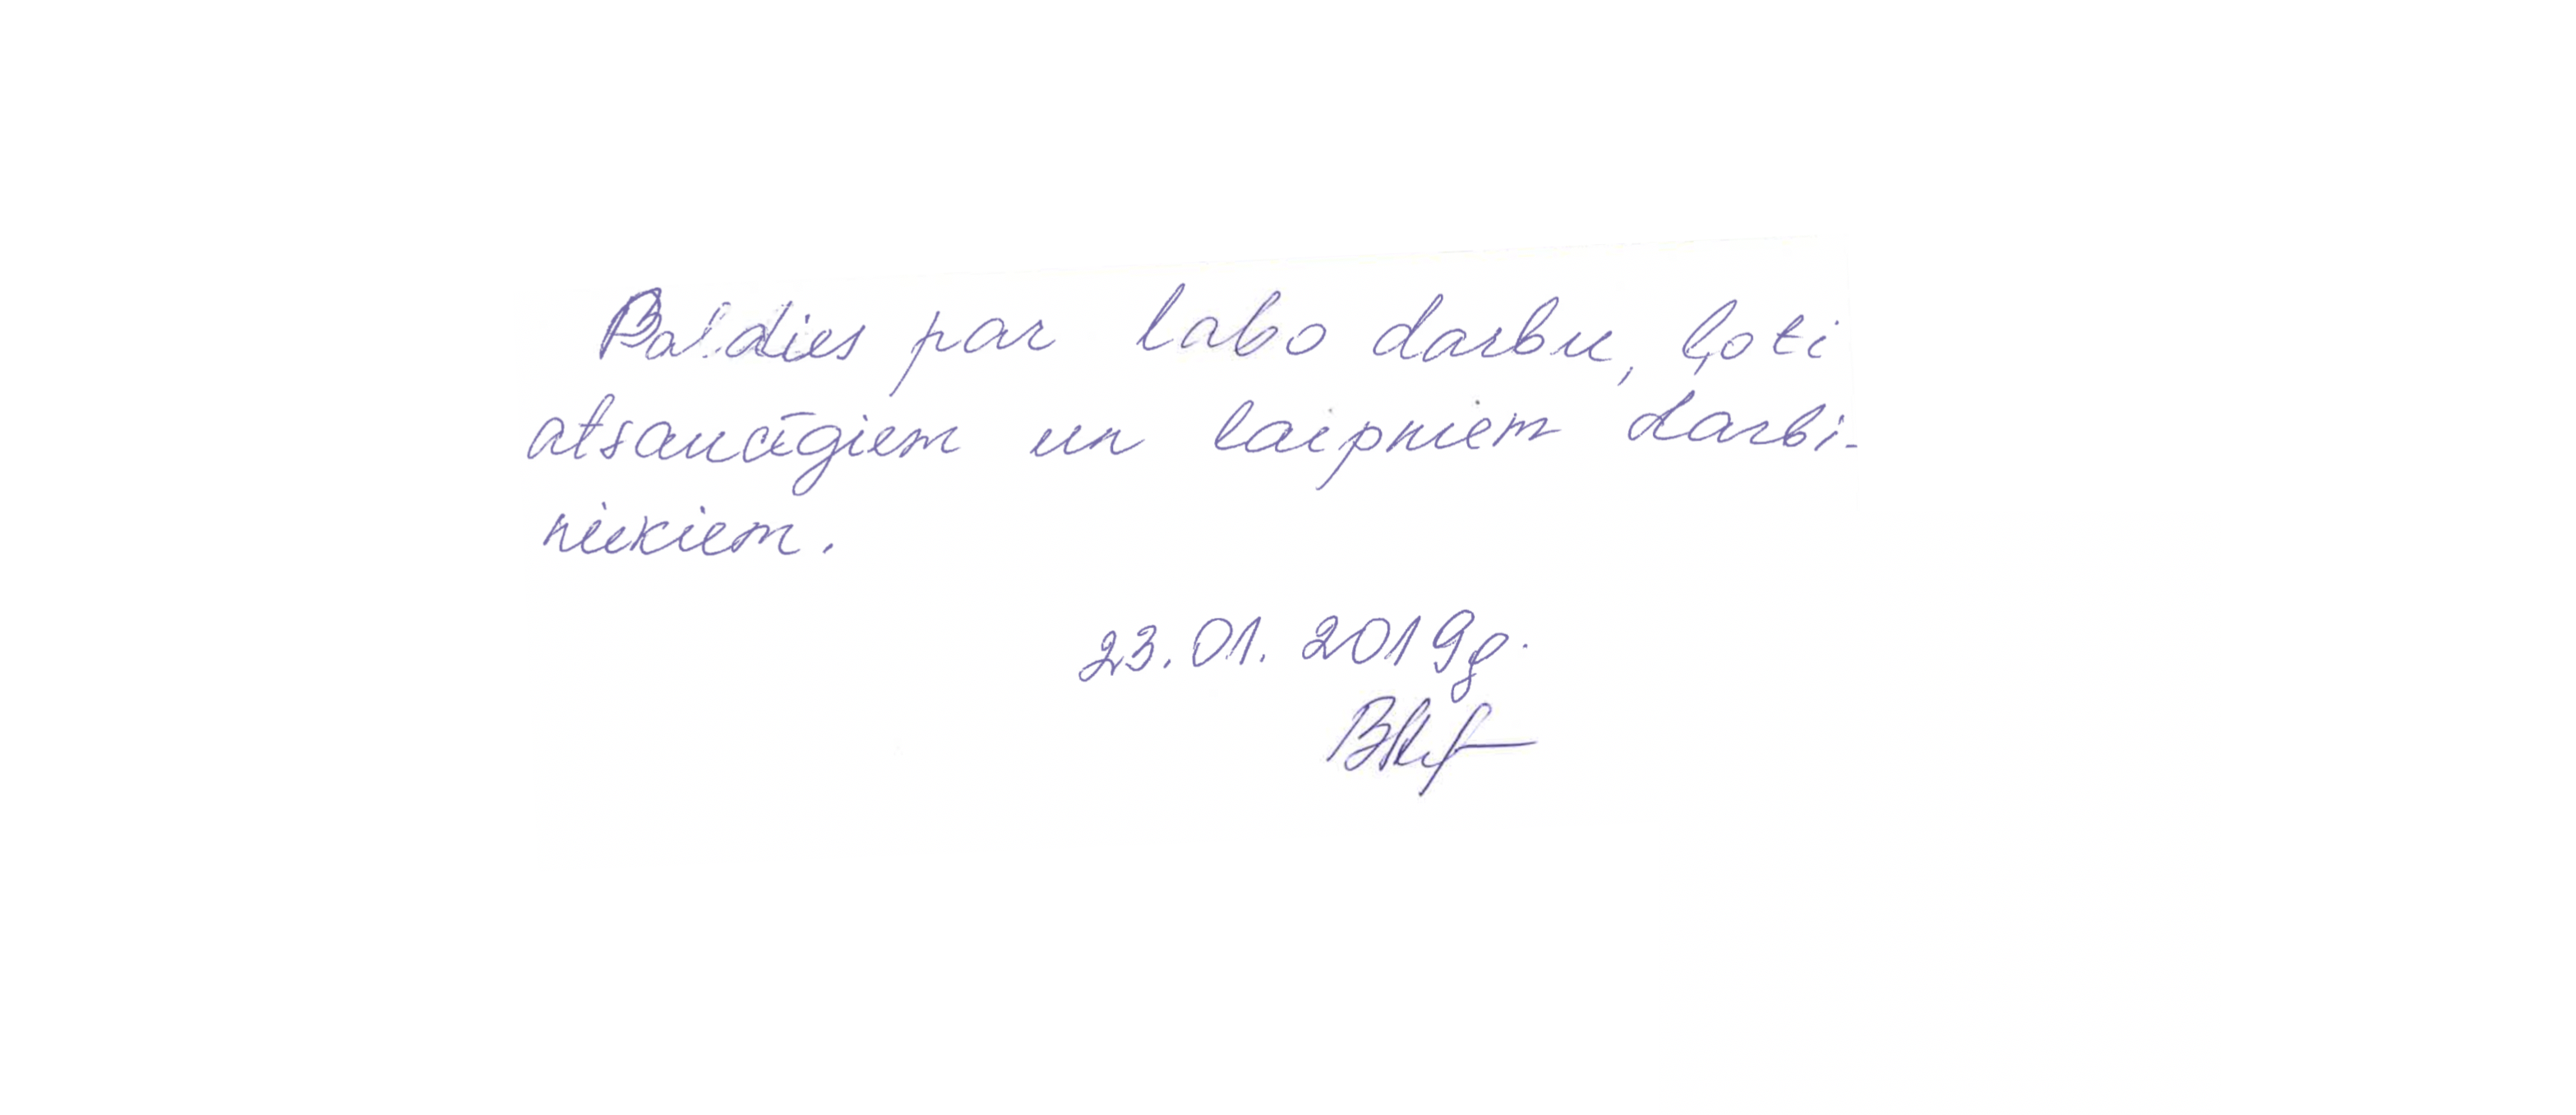 Paldies par labo darbu, ļoti
atsaucīgiem un laipniem darbi-
niekiem.
23.01.2019g.